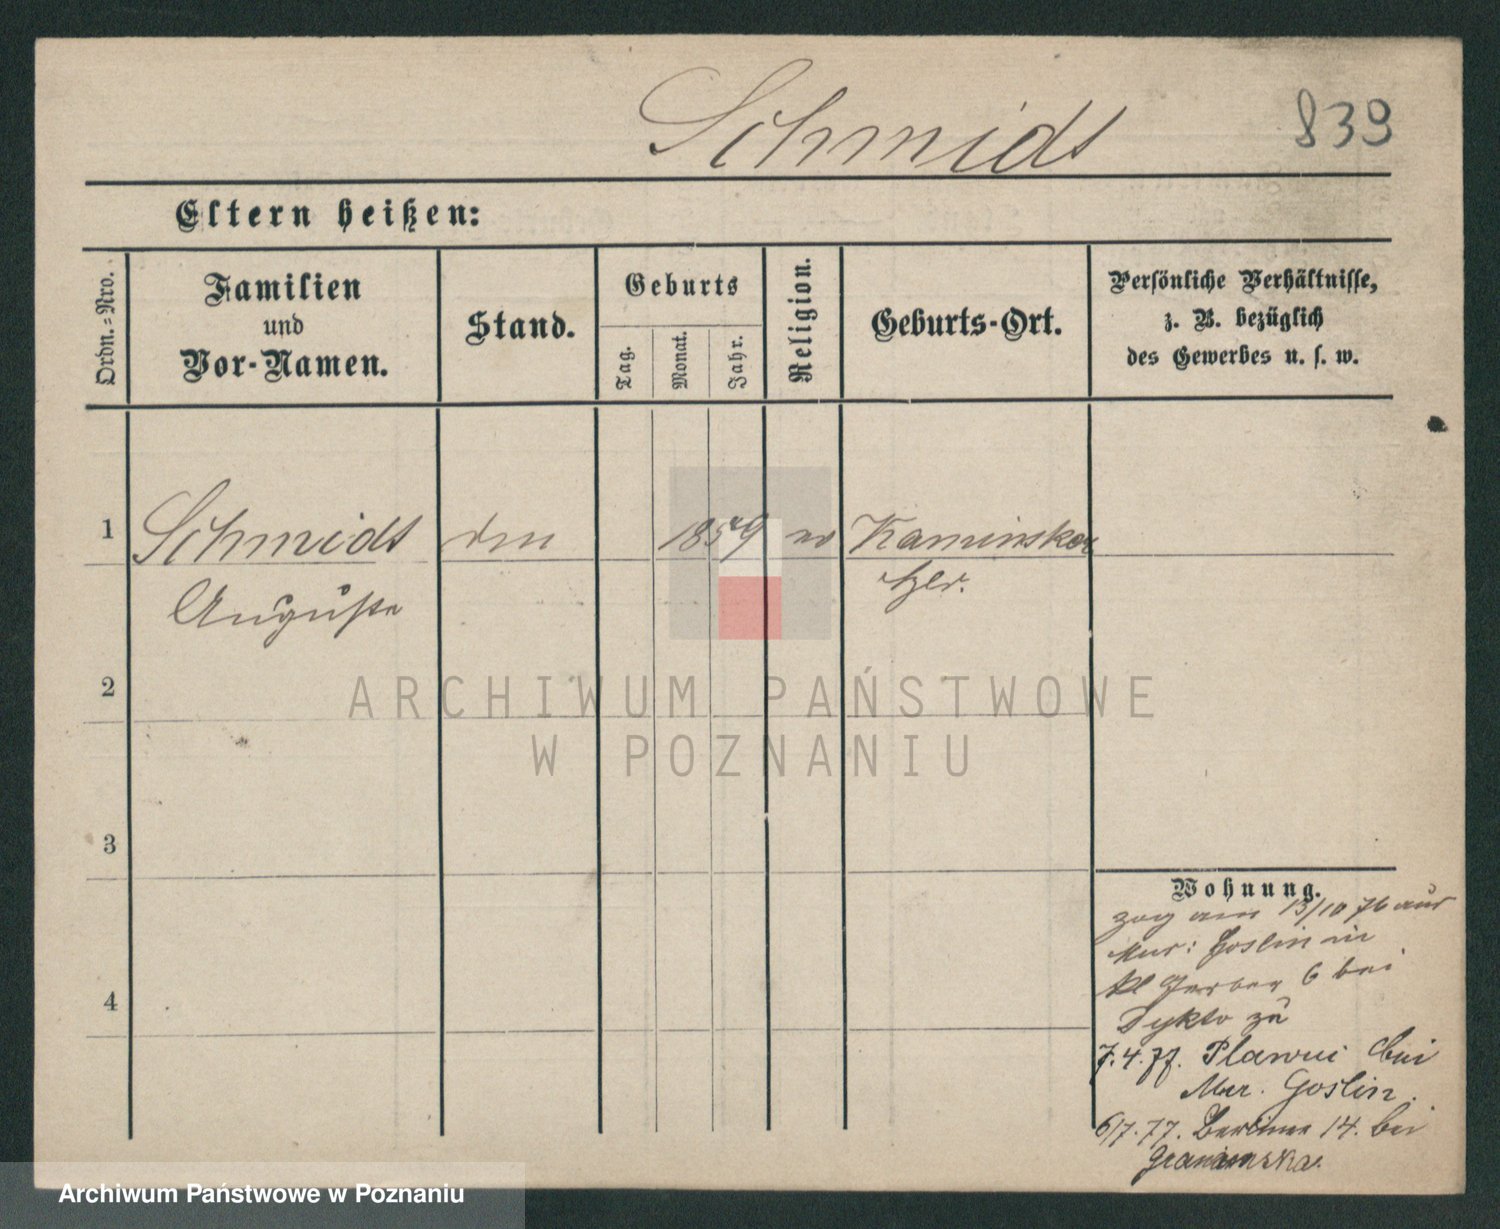 Schmidt
839
Eltern heißen:
Ordn.=Nro.
Familien
und
Vor-Namen.
Stand.
Geburts
Tag.
Monat.
Jahr.
Religion.
Geburts-Ort.
Persönliche Verhältnisse,
z. B. bezüglich
des Gewerbes u. s. w.
1
Schmidt
1859
ev
Auguste
2
3
4
Wohnung.
zog am 13/10 76 aus
Mur: Goslin in
kl Gerber 6 bei
zu
7.4.77. bei
Mur. Goslin.
6/7.77. Berliner 14. bei
ARCHIWUM PAŃSTWOWE
W POZNANIU
Archiwum Państwowe w Poznaniu